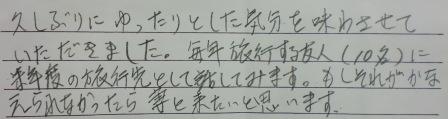 久しぶりにゆったりとした気分を味わさせて
いただきました。毎年旅行する友人(10名)に
来年度の旅行先として話してみます。もしそれがかな
えられなかったら妻と来たいと思います。